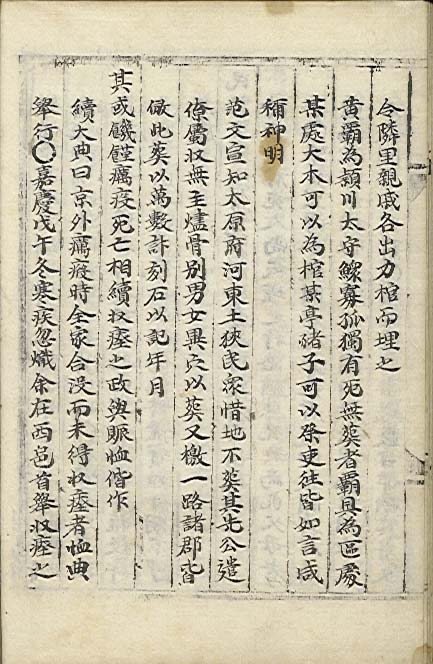 令隣里親戚各出力棺而埋之
黄霸為頴川太守鰥寡孤獨有死無葬者霸具為區處
某處大木可以為棺某亭猪子可以祭吏徃皆如言咸
稱神明
范文宣知太原府河東土狹民衆惜地不葬其先公遣
僚屬收無主燼骨別男女異穴以葬又檄一路諸郡皆
倣此葬以萬數計刻石以記年月
其或饑饉癘疫死亡相續收瘞之政與賑恤偕作
續大典曰京外癘疫時全家合沒而未得收瘞者恤典
舉行○嘉慶戊午冬寒疾忽熾余在西邑首舉收瘞之